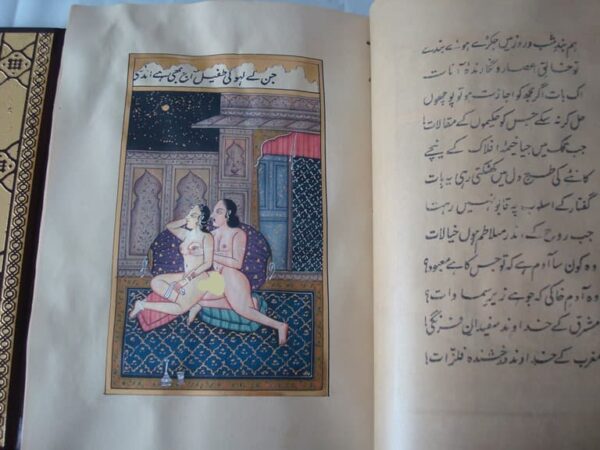 ہم بندِ شب و روز میں جکڑے ہوئے بندے
تو خالقِ اعصار و نگارندۂ آنات!
اک بات اگر مجھ کو اجازت ہو تو پوچھوں
حل کر نہ سکے جس کو حکیموں کے مقالات!
جب تک میں جیا خیمۂ افلاک کے نیچے
کانٹے کی طرح دل میں کھٹکتی رہی یہ بات
گفتار کے اسلوب پہ قابو نہیں رہتا
جب روح کے اندر متلاطم ہوں خیالات
وہ کون سا آدم ہے کہ تو جس کا ہے معبود؟
وہ آدمِ خاکی کہ جو ہے زیرِ سماوات؟
مشرق کے خداوند سفیدانِ فرنگی!
مغرب کے خداوند درخشندہ فلزات!
جن کے لہو کی طفیل آج بھی ہے